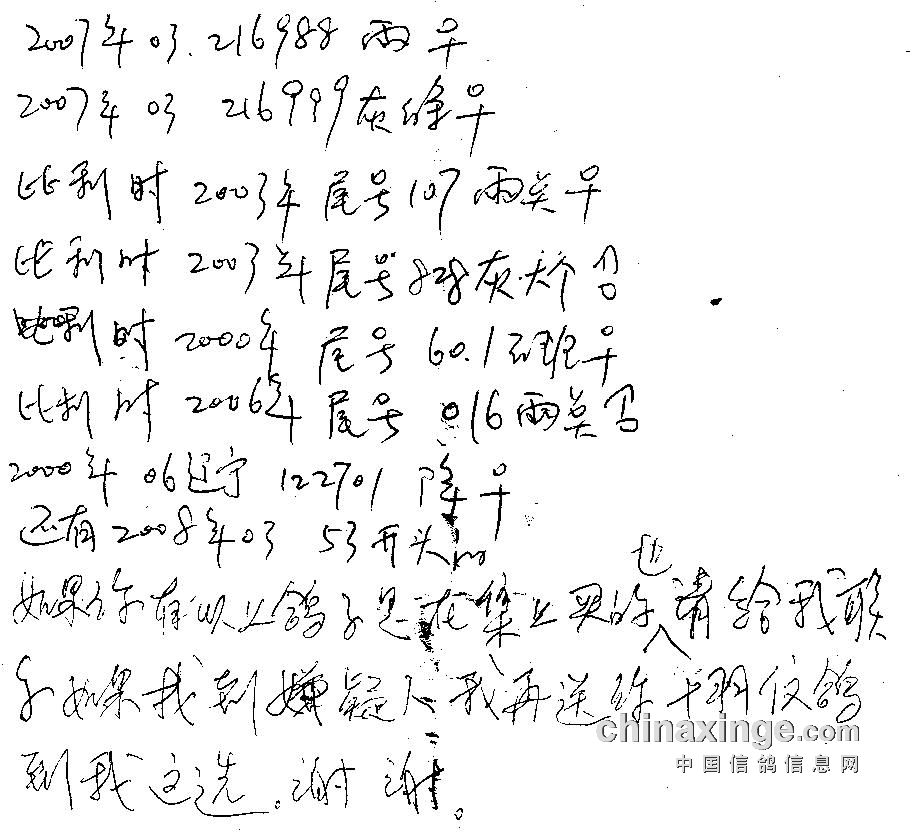 2007年 03.216988 雨♀
2007年 03 216999灰绛♀
比利时 2003年 尾号107 雨芙♀
比利时 2003年 尾号828灰大个♂
时 2000年 尾号 60.1 斑♀
比利时 2006年 尾号 016 雨芙♂
2000年 06辽宁 122701 降♀
还有2008年03 53开头的
如果你有以上鸽子是在集上买的也请给我联
系如果找到嫌疑人我再送你十羽仪鸽
到我这选。谢谢。
chinaxinge.com
中国信鸽信息网